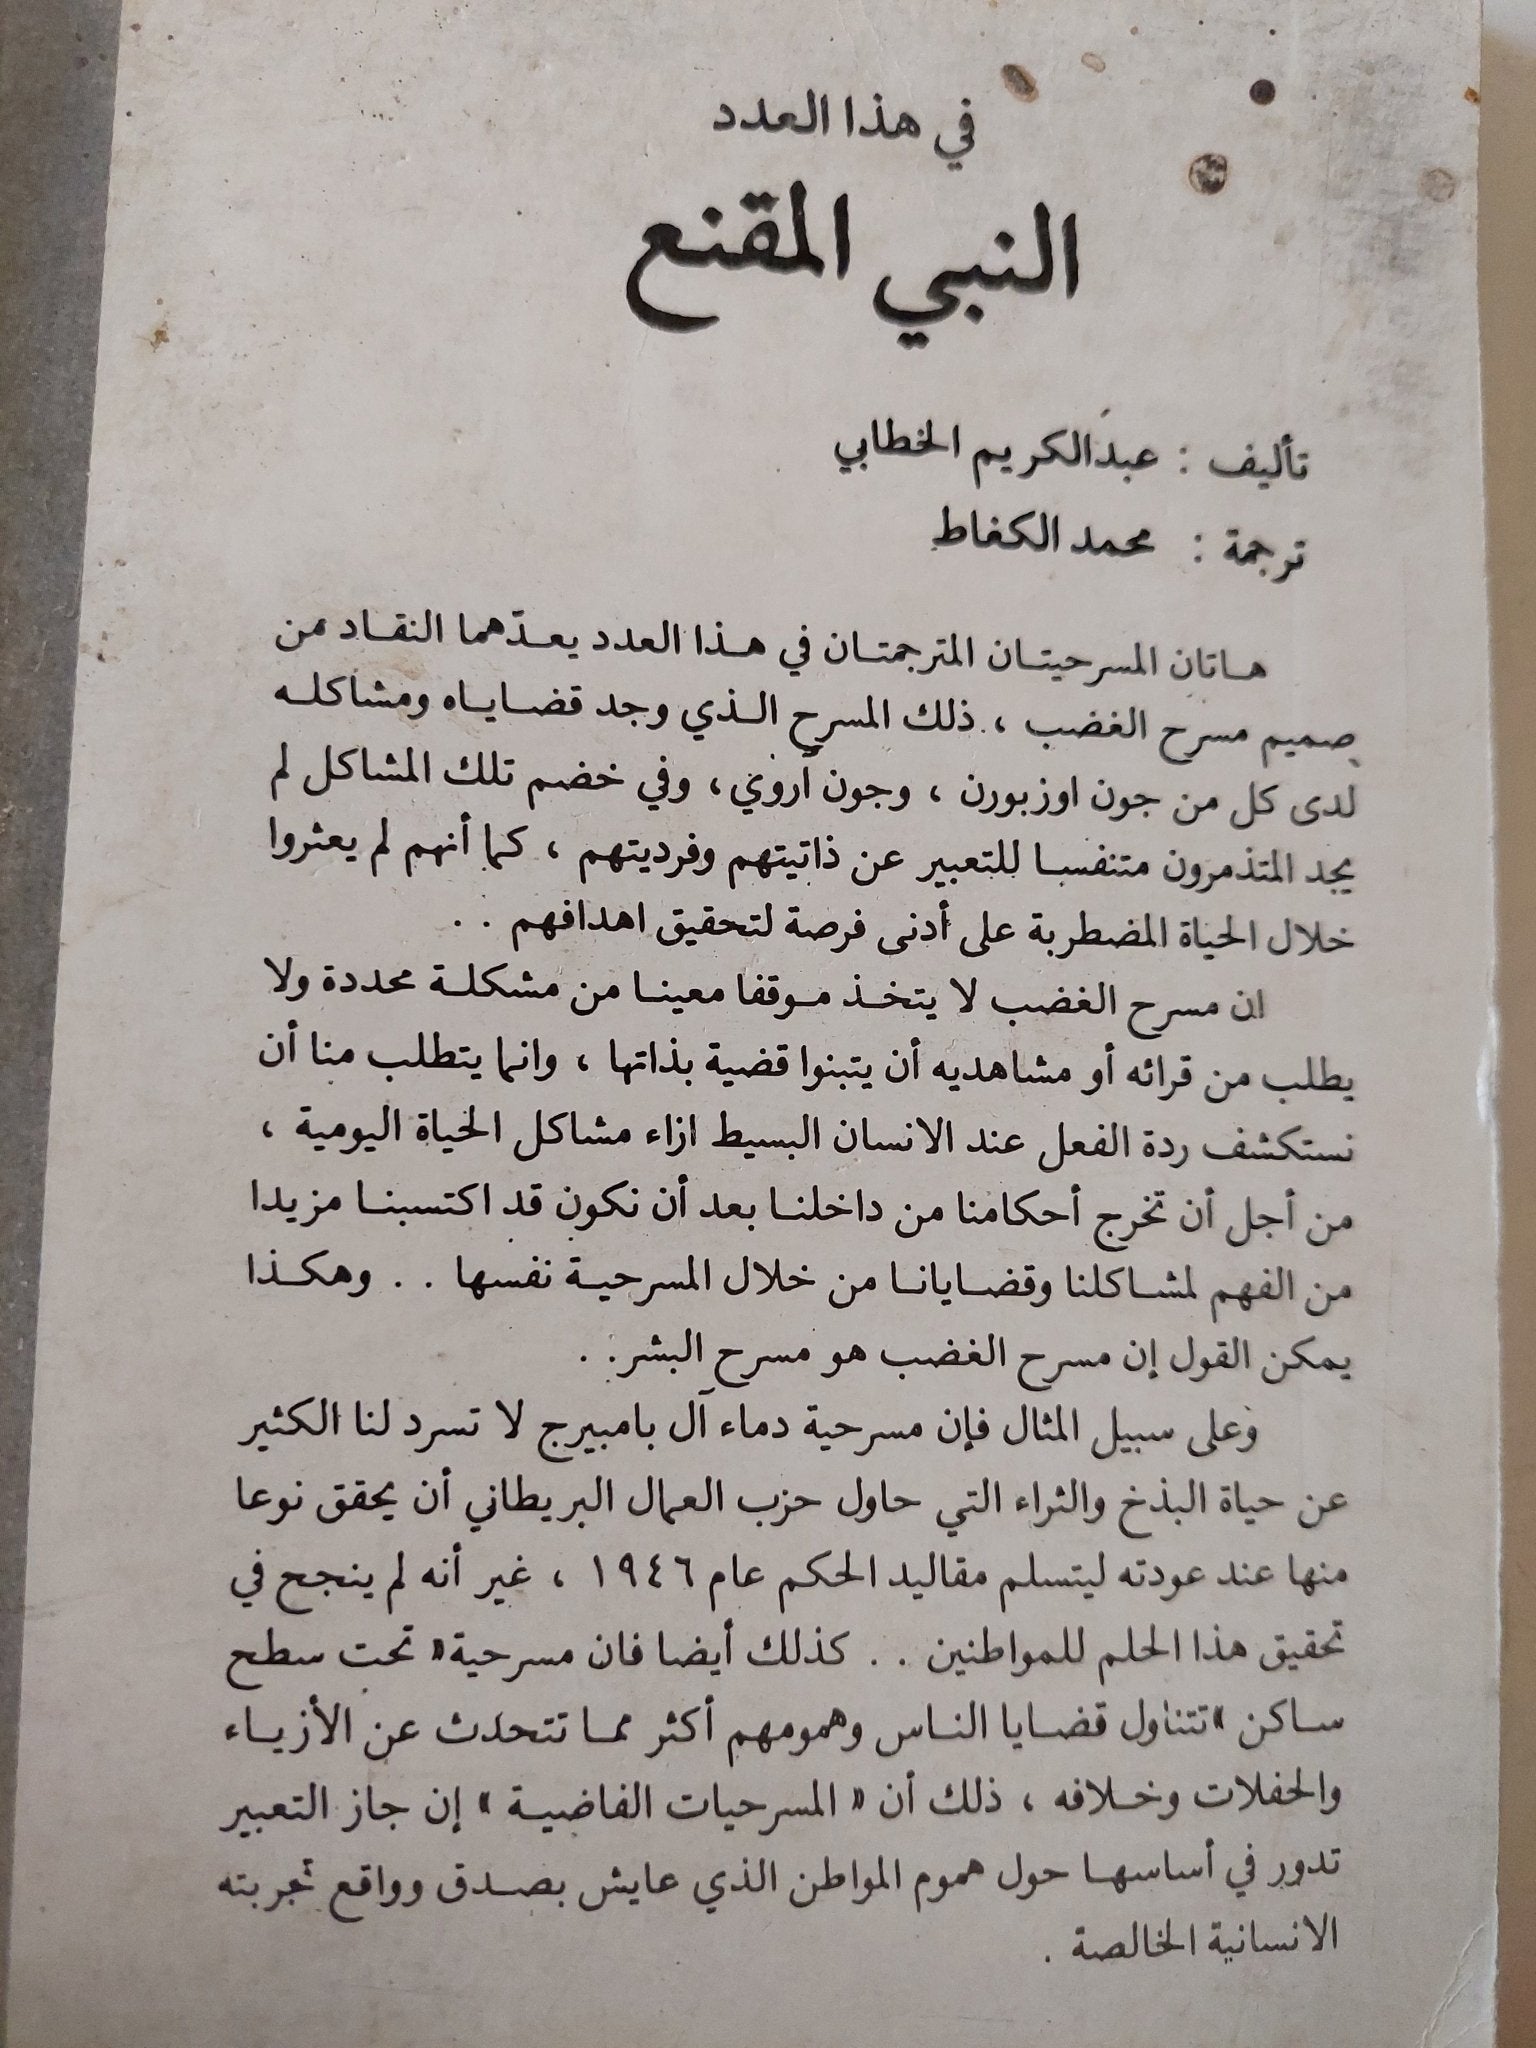 في هذا العدد
النبي المقنع
تأليف : عبدالكريم الخطابي
ترجمة : محمد الكغاط
هاتان المسرحيتان المترجمتان في هذا العدد يعدّهما النقاد من
صميم مسرح الغضب ، ذلك المسرح الذي وجد قضاياه ومشاكله
لدى كل من جون اوزبورن ، وجون آروي ، وفي خضم تلك المشاكل لم
يجد المتذمرون متنفسا للتعبير عن ذاتيتهم وفرديتهم ، كما أنهم لم يعثروا
خلال الحياة المضطربة على أدنى فرصة لتحقيق اهدافهم . .
ان مسرح الغضب لا يتخذ موقفا معينا من مشكلة محددة ولا
يطلب من قرائه أو مشاهديه أن يتبنوا قضية بذاتها ، وانما يتطلب منا أن
نستكشف ردة الفعل عند الانسان البسيط ازاء مشاكل الحياة اليومية ،
من أجل أن تخرج أحكامنا من داخلنا بعد أن نكون قد اكتسبنا مزيدا
من الفهم لمشاكلنا وقضايانا من خلال المسرحية نفسها . . وهكذا
يمكن القول إن مسرح الغضب هو مسرح البشر . .
وعلى سبيل المثال فإن مسرحية دماء آل بامبيرج لا تسرد لنا الكثير
عن حياة البذخ والثراء التي حاول حزب العمال البريطاني أن يحقق نوعا
منها عند عودته ليتسلم مقاليد الحكم عام ١٩٤٦ ، غير أنه لم ينجح في
تحقيق هذا الحلم للمواطنين . . كذلك أيضا فان مسرحية « تحت سطح
ساكن » تتناول قضايا الناس وهمومهم أكثر مما تتحدث عن الأزياء
والحفلات وخلافه ، ذلك أن « المسرحيات الغاضبة » إن جاز التعبير
تدور في أساسها حول هموم المواطن الذي عايش بصدق وواقع تجربته
الانسانية الخالصة .